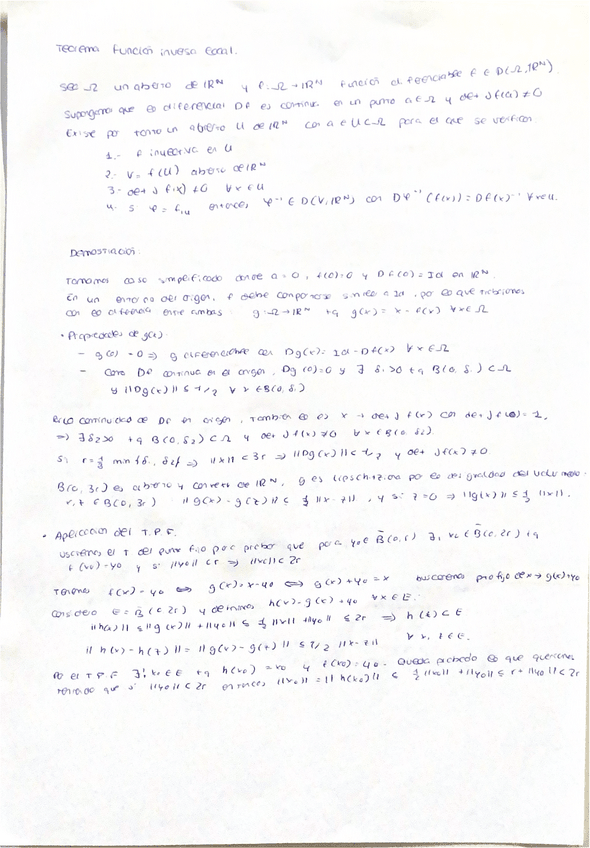 Teorema función inversa local.
Sea Ω un abierto de IRᴺ y f: Ω → IRᴺ función diferenciable f ∈ D(Ω, IRᴺ).
Supongamos que la diferencial Df es continua en un punto a ∈ Ω y det Jf(a) ≠ 0
Existe por tanto un abierto U de IRᴺ con a ∈ U ⊂ Ω para el que se verifican
1.- f inyectiva en U
2.- V = f(U) abierto de IRᴺ
3.- det J f(x) ≠ 0 ∀x ∈ U
4.- si φ = f|u entonces φ⁻¹ ∈ D(V, IRᴺ) con Dφ⁻¹(f(x)) = Df(x)⁻¹ ∀x∈U.
Demostración:
Tomamos caso simplificado donde a = 0, f(0)=0 y Df(0) = Id en IRᴺ.
En un entorno del origen, f debe comportarse similar a Id, por lo que
con la diferencia entre ambas: g: Ω → IRᴺ tq g(x) = x - f(x) ∀x ∈ Ω
• Propiedades de g(x)
- g(0) = 0 => g diferenciable con Dg(x) = Id - Df(x) ∀ x ∈ Ω
- Como Df continua en el origen, Dg(0) = 0 y ∃ δ₁ > 0 tq B(0, δ₁) ⊂ Ω
y ||Dg(x)|| ≤ 1/2 ∀ x ∈ B(0, δ₁)
continuidad de Df en origen, también lo es x → det J f(x) con det J f(0) = 1,
=> ∃ δ₂>0 tq B(0, δ₂) ⊂ Ω y det Jf(x) ≠ 0 ∀x ∈ B(0, δ₂).
Si r = 1/3 min {δ₁, δ₂} => ||x|| < 3r => ||Dg(x)|| ≤ 1/2 y det Jf(x) ≠ 0
B(0, 3r) es abierto y convexo de IRᴺ, g es lipschitziana por la desigualdad del valor medio.
x, z ∈ B(0, 3r) ||g(x) - g(z)|| ≤ 1/2 ||x - z||, y si z = 0 => ||g(x)|| ≤ 1/2 ||x||.
• Aplicación del T.P.F.
usaremos el T del punto fijo para probar que para y₀ ∈ B̄(0, r) ∃₁ x₀ ∈ B̄(0, 2r) tq
f(x₀) = y₀ y si ||y₀|| < r => ||x₀|| < 2r
Tenemos f(x) = y₀ <=> g(x) = x - y₀ <=> g(x) + y₀ = x buscaremos pto fijo de x → g(x)+y₀
Considero E = B̄(0, 2r) y definimos h(x) = g(x) + y₀ ∀x ∈ E.
||h(x)|| ≤ ||g(x)|| + ||y₀|| ≤ 1/2 ||x|| + ||y₀|| ≤ 2r => h(E) ⊂ E
||h(x) - h(z)|| = ||g(x) - g(z)|| ≤ 1/2 ||x - z|| ∀ x, z ∈ E.
Por el T.P.F ∃! x₀ ∈ E tq h(x₀) = x₀ y f(x₀) = y₀. Queda probado lo que queríamos
que si ||y₀|| < 2r entonces ||x₀|| = ||h(x₀)|| ≤ 1/2 ||x₀|| + ||y₀|| ≤ r + ||y₀|| < 2r